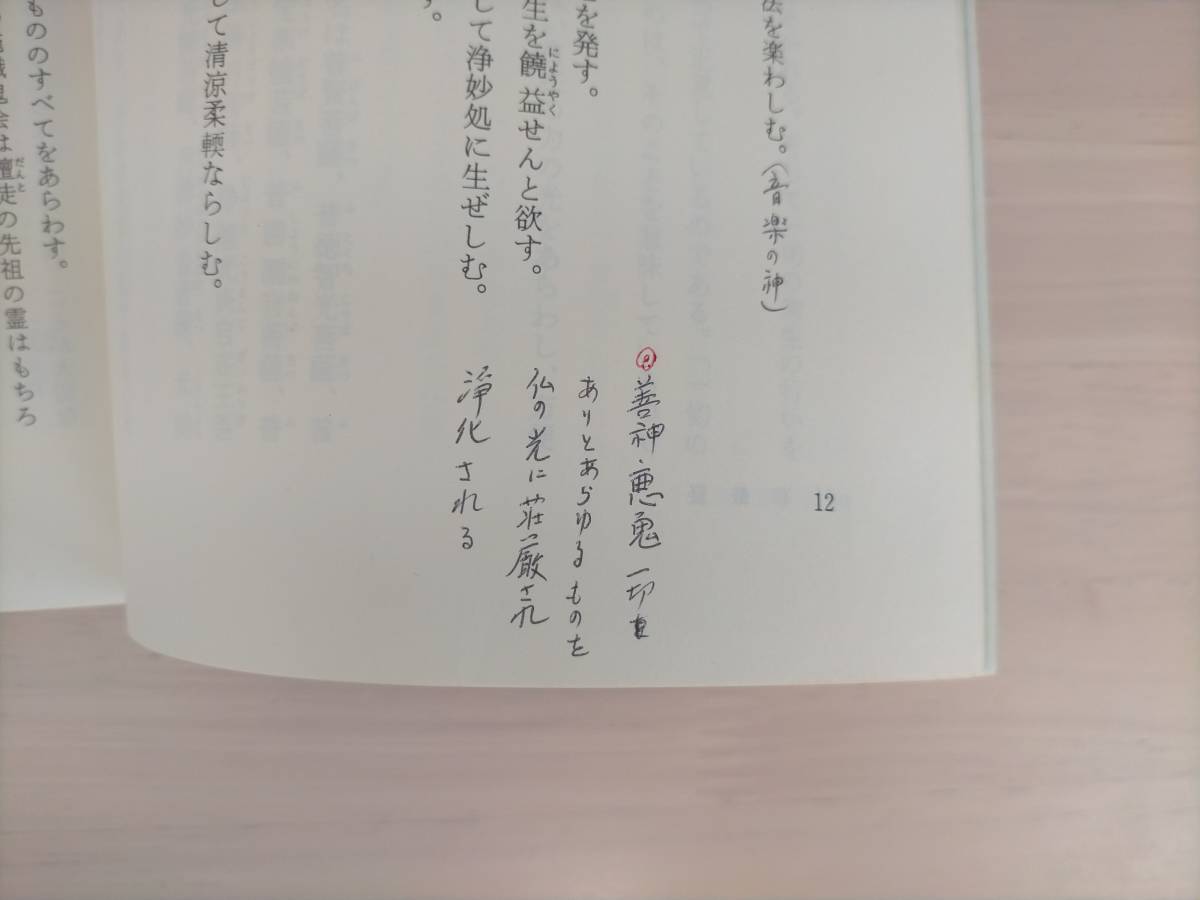 法を楽わしむ。(音楽の神)
を発す。
生を饒益せんと欲す。
にようやく
して浄妙処に生ぜしむ。
す。
して清涼柔輭ならしむ。
善神・悪鬼一切を
ありとあらゆるものを
仏の光に荘厳され
浄化される
12
もののすべてをあらわす。
会は檀徒の先祖の霊はもちろ
だんと